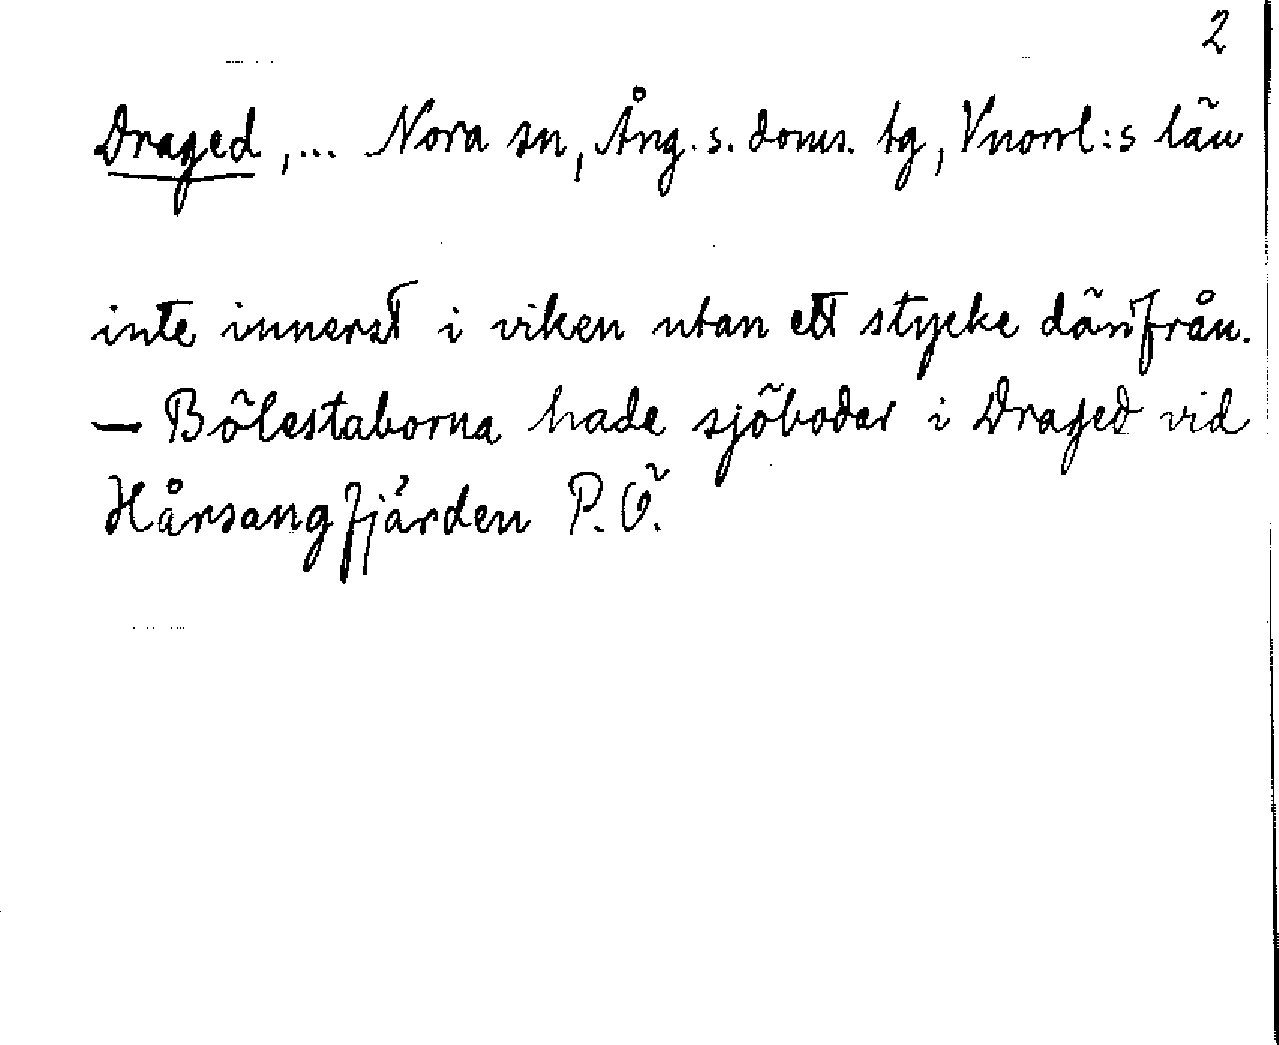 2
Draged, ... Nora sn, Ång. s. doms. tg, Vnorrl:s län
inte innerst i viken utan ett stycke därifrån.
— Bölestaborna hade sjöbodar i Draged vid
Hårsangfjärden P.Ö.